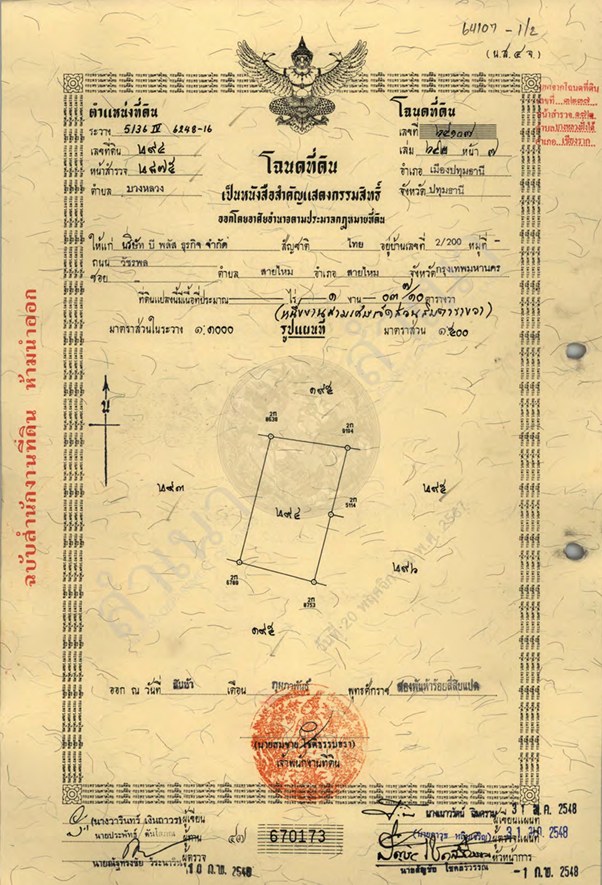 64107 - 1/2
(น.ส.๔ จ.)
ตำแหน่งที่ดิน
ระวาง 5136 IV 6248-16
เลขที่ดิน ๒๙๔
หน้าสำรวจ ๒๔๗๕
ตำบล บางหลวง
โฉนดที่ดิน
เลขที่ ๖๔๑๐๗
เล่ม ๖๔๒ หน้า ๗
อำเภอ เมืองปทุมธานี
จังหวัด ปทุมธานี
โฉนดที่ดิน
เป็นหนังสือสำคัญแสดงกรรมสิทธิ์
ออกโดยอาศัยอำนาจตามประมวลกฎหมายที่ดิน
ให้แก่ บริษัท บี พลัส ธุรกิจ จำกัด สัญชาติ ไทย อยู่บ้านเลขที่ 2/200 หมู่ที่ -
ถนน วัชรพล
ซอย - ตำบล สายไหม อำเภอ สายไหม จังหวัด กรุงเทพมหานคร
ที่ดินแปลงนี้มีเนื้อที่ประมาณ - ไร่ ๑ งาน ๐๓ ๗/๑๐ ตารางวา
(หนึ่งงานสามเศษเจ็ดส่วนสิบตารางวา)
มาตราส่วนในระวาง ๑:๑๐๐๐ รูปแผนที่ มาตราส่วน ๑:๕๐๐
ฉบับสำนักงานที่ดิน ห้ามนำออก
น
๑๙๕
2ก 8638
2ก
๒๙๓
๒๙๔
5114
๒๙๕
๒๙๖
2ก 6786
2ก
๑๙๕
สำเนา
วันที่ 20 พฤศจิกายน พ.ศ. 2567
ออก ณ วันที่ สิบห้า เดือน กุมภาพันธ์ พุทธศักราช สองพันห้าร้อยสี่สิบแปด
เจ้าพนักงานที่ดิน
ผู้เขียน
ผู้ทาน
ผู้ตรวจ
10 ก.พ. 2548
670173
31 ม.ค. 2548
ผู้เขียนแผนที่
31 ม.ค. 2548
ผู้ตรวจแผนที่
หัวหน้าการ
-1 ก.พ. 2548